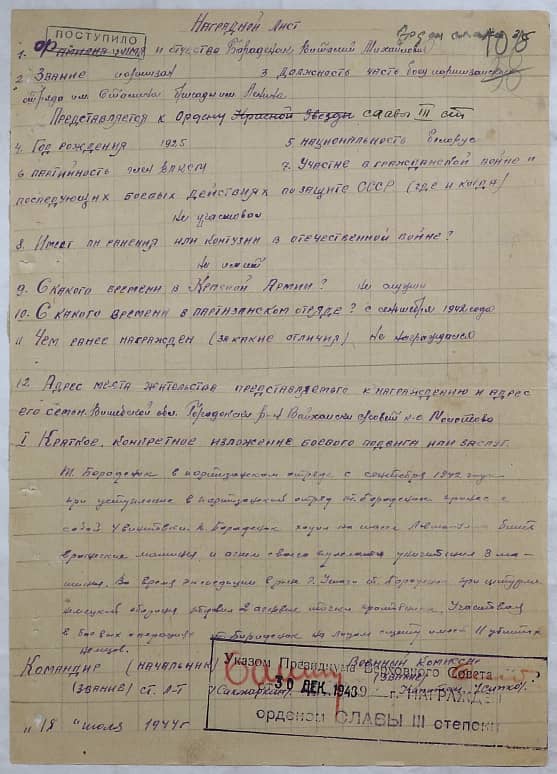 Наградной Лист
ПОСТУПИЛО
1. имя и отчество Бородёнок Виталий Михайлович
2 Звание партизан 3 Должность часть боец партизанского
отряда им. Сталина бригады им. Ленина
Представляется к Ордену Красной Звезды славы III ст
4. Год рождения 1925 5 национальность белорус
6 партийность член ВЛКСМ 7. Участие в гражданской войне и
последующих боевых действиях по защите СССР (где и когда)
Не участвовал
8. Имеет ли ранения или контузии в отечественной войне?
Не имеет
9. С какого времени в Красной Армии? Не служил
10. С какого времени в партизанском отряде? с сентября 1942 года
11 Чем ранее награжден (за какие отличия) Не награждался
12. Адрес места жительства представляемого к награждению и адрес
его семьи. Витебской обл. Городокский р-н
I Краткое, конкретное изложение боевого подвига или заслуг.
т. Бородёнок в партизанском отряде с сентября 1942 года
при вступление в партизанский отряд т. Бородёнок принес с
собой 4 винтовки. т. Бородёнок ходил на шоссе
вражеские машины, и огнем своего пулемета уничтожил 3 ма-
шины. Во время экспедиции в т. Бородёнок при штурме
немецкой обороны 2 огневые точки противника. Участвовал
в боевых операциях т. Бороденок на личном счету имеет 11 убитых
немцев.
Командир (начальник) Военный комиссар
(звание) ст. л-т (звание) Капитан
Указом Президиума Верховного Совета
30 ДЕК. 1943 г. НАГРАЖДЕН
орденом СЛАВЫ III степени
"18" июля 1944 г